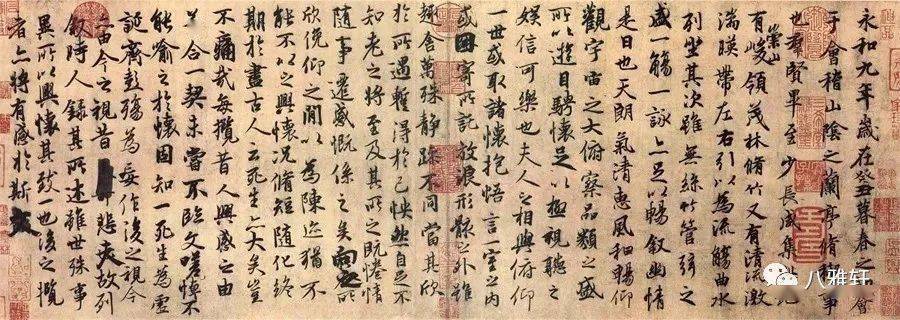 永和九年歲在癸丑暮春之初會
于會稽山陰之蘭亭脩禊事
也群賢畢至少長咸集此地
有崇山峻領茂林脩竹又有清流激
湍暎帶左右引以為流觴曲水
列坐其次雖無絲竹管弦之
盛一觴一詠亦足以暢敘幽情
是日也天朗氣清惠風和暢仰
觀宇宙之大俯察品類之盛
所以遊目騁懷足以極視聽之
娛信可樂也夫人之相與俯仰
一世或取諸懷抱悟言一室之內
或因寄所託放浪形骸之外雖
趣舍萬殊靜躁不同當其欣
於所遇暫得於己怏然自足不
知老之將至及其所之既惓情
隨事遷感慨係之矣向之所
欣俛仰之閒以為陳迹猶不
能不以之興懷況脩短隨化終
期於盡古人云死生亦大矣豈
不痛哉每攬昔人興感之由
若合一契未嘗不臨文嗟悼不
能喻之於懷固知一死生為虛
誕齊彭殤為妄作後之視今
亦由今之視昔悲夫故列
敘時人錄其所述雖世殊事
異所以興懷其致一也後之攬
者亦將有感於斯文
八雅轩